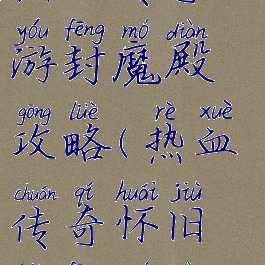 yóu fēng mó diàn
游封魔殿
gōng lüè rè xuè
攻略(热血
chuán qí huái jiù
传奇怀旧